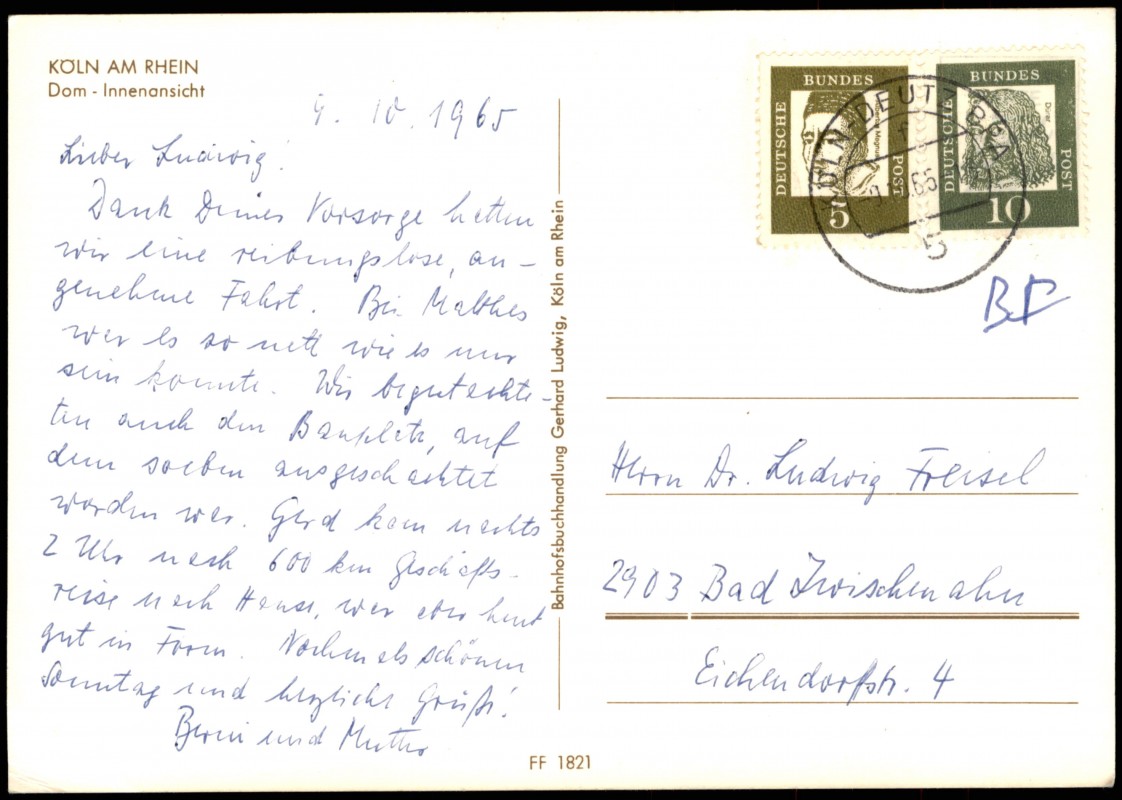 KÖLN AM RHEIN
Dom - Innenansicht
9. 10. 1965
Lieber Ludwig!
Dank Deiner Vorsorge hatten
wir eine reibungslose, an-
genehme Fahrt. Bei Matthes
war es so nett wie es nur
sein konnte. Wir begutachte-
ten auch den Bauplatz, auf
dem soeben ausgeschachtet
worden war. Gerd kam nachts
2 Uhr nach 600 km Geschäfts-
reise nach Hause, war aber heut
gut in Form. Nochmals schönen
Sonntag und herzliche Grüße!
und Mutter
Bahnhofsbuchhandlung Gerhard Ludwig, Köln am Rhein
FF 1821
DEUTSCHE BUNDES POST
5
Albertus Magnus
DEUTSCHE BUNDES POST
10
Dürer
KÖLN-DEUTZ BPA
f
9.10.65
5
Herrn Dr. Ludwig Freisel
2903 Bad Zwischenahn
Eichendorfstr. 4